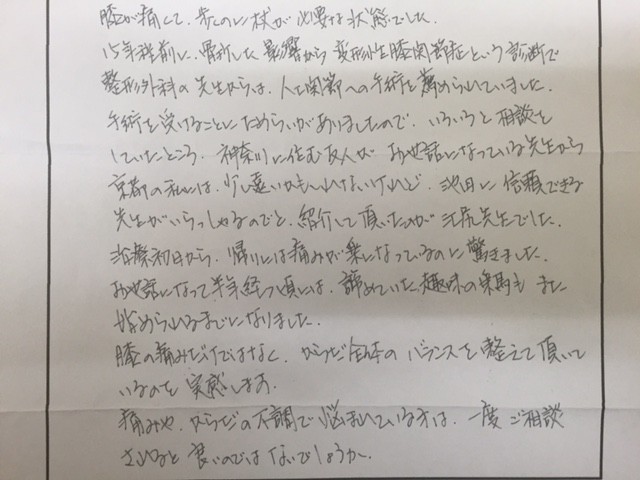 膝が痛くて、歩くのに杖が必要な状態でした。
15年程前に、骨折した影響から変形性膝関節症という診断で
整形外科の先生からは、人工関節への手術を薦められていました。
手術を受けることにためらいがありましたので、いろいろと相談を
していたところ、神奈川に住む友人が お世話になっている先生から
京都の私には、少し遠いかもしれないけれど、池田に信頼できる
先生がいらっしゃるのでと、紹介して頂いたのが江尻先生でした。
治療初日から、帰りには痛みが楽になっているのに驚きました。
お世話になって半年経つ頃には、諦めていた趣味の乗馬も また
始められるまでになりました。
膝の痛みだけではなく、からだ全体の バランスを整えて頂いて
いるのを 実感します。
痛みや、からだの不調で悩まれている方は、一度 ご相談
されると 良いのではないでしょうか。